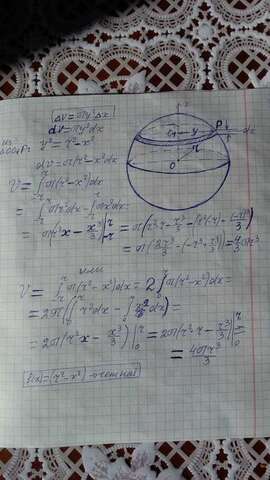 ΔV=πy²Δx
dV=πy²dx
из ΔOO₁P: y²=r²-x²
dV=π(r²-x²)dx
V=∫₋ᵣʳ π(r²-x²)dx
=∫₋ᵣʳ πr²dx-∫₋ᵣʳ πx²dx=
=π(r²x-x³/3)|₋ᵣʳ=π(r²·r-r³/3-(r²(-r)-(-r)³/3))
=π(2r³/3-(-r³+r³/3))=4/3πr³
или
V=∫₋ᵣʳ π(r²-x²)dx=2∫₀ʳ π(r²-x²)dx=
=2π(∫₀ʳ r²dx-∫₀ʳ x²dx)=
=2π(r²x-x³/3)|₀ʳ=2π(r²·r-r³/3)|₀ʳ=
=4πr³/3
f(x)=(r²-x²)-четная